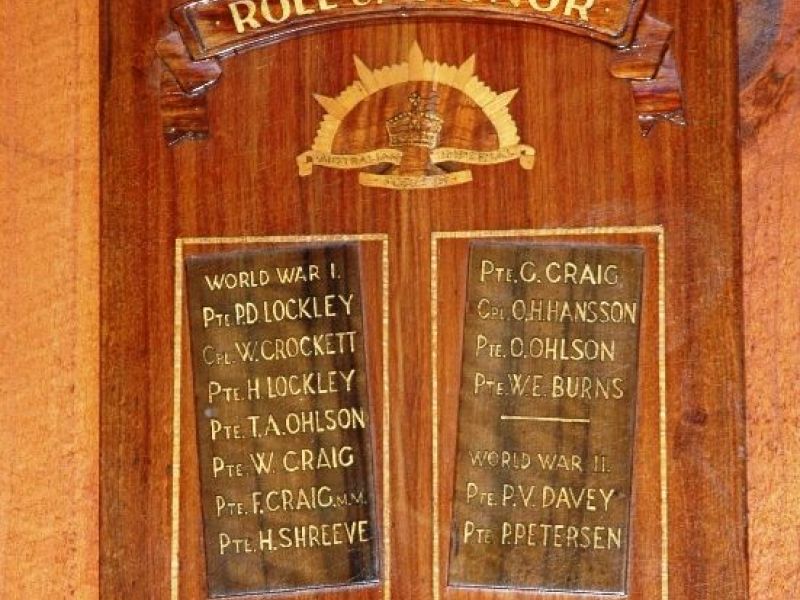 ROLL OF HONOR
AUSTRALIAN IMPERIAL
WORLD WAR I.
PTE. P.D LOCKLEY
CPL. W. CROCKETT
PTE. H. LOCKLEY
PTE. T. A. OHLSON
PTE. W. CRAIG
PTE. F. CRAIG. M.M.
PTE. H. SHREEVE
PTE. G. CRAIG
CPL. O. H. HANSSON
PTE. O. OHLSON
PTE. W. E. BURNS
WORLD WAR II.
PTE. P. V. DAVEY
PTE. P. PETERSEN